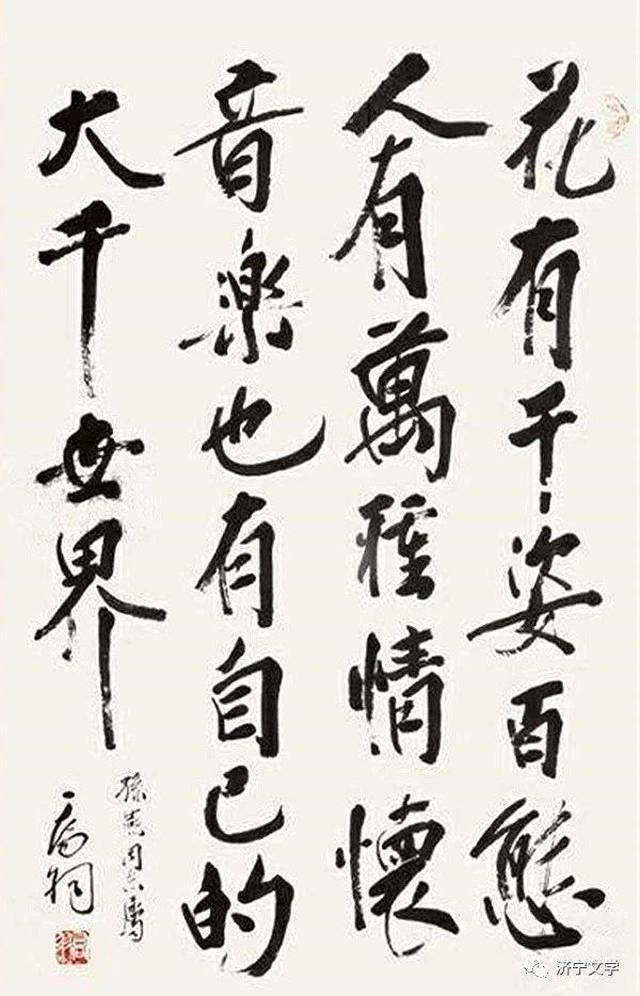 花有千姿百態
人有萬種情懷
音楽也有自己的
大千世界
济宁文学